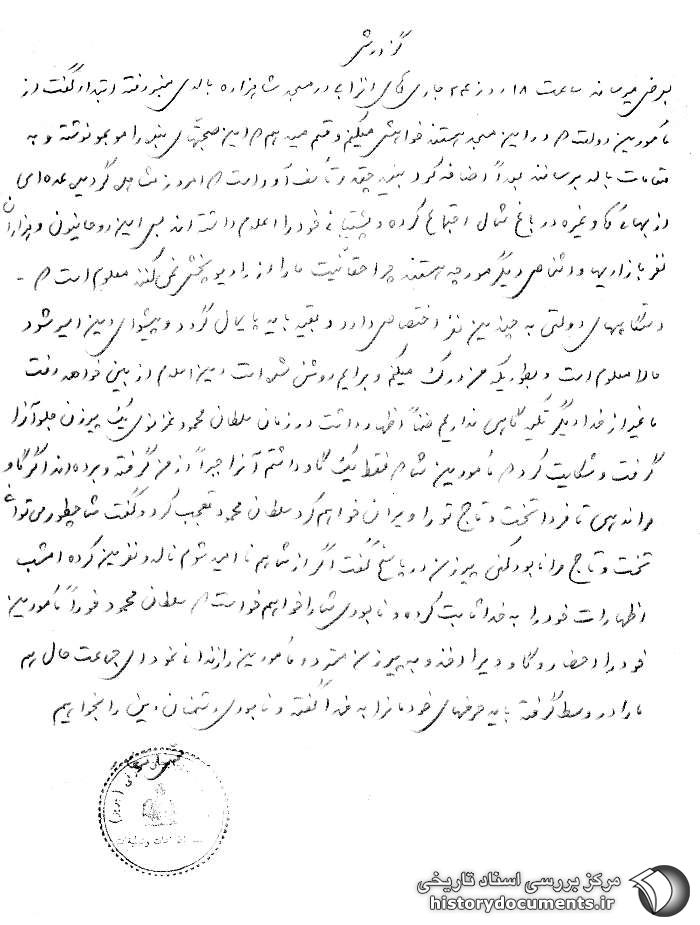 گزارش
بعرض میرساند ساعت ۱۸ روز ۲۴ جاری آقای انزابی در مسجد شاهزاده بالای منبر رفته ابتدا گفت از
مأمورین دولت که در این مسجد هستند خواهش میکنم و قسم میدهم که این صحبتهای بنده را موبمو نوشته و به
مقامات بالا برسانند بعداً اضافه کرد ببینید چقدر تأسف آور است که امروز مشاهده گردید عده‌ای
از بهائی‌ها و غیره در باغ شمال اجتماع کرده و پشتیبانی خود را اعلام داشته‌اند پس این روحانیون و هزاران
نفر بازاریها و اشخاص دیگر مورچه هستند چرا حقانیت ما را از رادیو پخش نمی‌کنند معلوم است که -
دستگاههای دولتی به چندین نفر اختصاص دارد و بقیه باید پایمال گردد و پیشوای دین اسیر شود
حالا معلوم است و بطوریکه من درک میکنم و برایم روشن شده است دین اسلام از بین خواهد رفت
ما غیر از خدا دیگر تکیه گاهی نداریم ضمناً اظهار داشت در زمان سلطان محمود غزنوی یک پیرزن جلو آنرا
گرفت و شکایت کرد که مأمورین شما که فقط یک گاو داشتم آنرا جبراً از من گرفته و برده‌اند اگر گاو
مرا ندهی تا فردا تخت و تاج تو را ویران خواهم کرد سلطان محمود تعجب کرد و گفت شما چطور می‌توانی
تخت و تاج مرا نابود کنی پیرزن در پاسخ گفت اگر از شما هم نا امید شوم ناله و نفرین کرده امشب
اظهارات خود را به خدا ثابت کرده و نابودی شما را خواهم خواست که سلطان محمود فوراً مأمورین
خود را احضار و گاو را به پیرزن مسترد و مأمورین را زندانی نمود ای جماعت حال هم
ما را در وسط گرفته باید حرفهای خودمانرا به خدا گفته و نابودی دشمنان دین را بخواهیم
مرکز بررسی اسناد تاریخی
historydocuments.ir